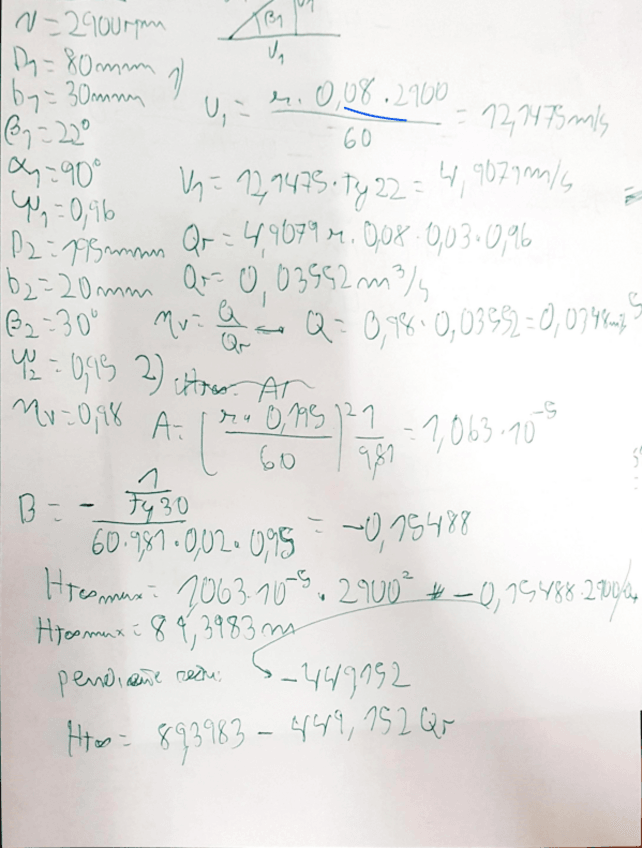 N = 2900 rpm
D₁ = 80mm
b₁ = 30mm
β₁ = 22°
α₁ = 90°
ψ₁ = 0,96
D₂ = 195mm
b₂ = 20mm
β₂ = 30°
ψ₂ = 0,95
ηv = 0,98
β₁
U₁
1) U₁ = π · 0,08 · 2900 / 60 = 12,1475 m/s
V₁ = 12,1475 · Tg 22 = 4,9079 m/s
Qr = 4,9079 π · 0,08 · 0,03 · 0,96
Qr = 0,03552 m³/s
ηv = Q / Qr → Q = 0,98 · 0,03552 = 0,0348 m³/s
2)
A = (π · 0,195 / 60)² 1 / 9,81 = 1,063 · 10⁻⁵
B = - (1 / Tg 30) / (60 · 9,81 · 0,02 · 0,95) = -0,15488
HT∞max = 1,063 · 10⁻⁵ · 2900² - 0,15488 · 2900/Qr
HT∞max = 89,3983 m
-449,152
HT∞ = 89,3983 - 449,152 Qr